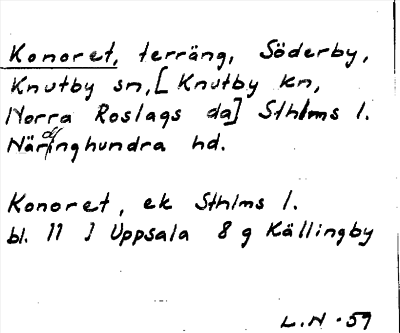 Konoret, terräng, Söderby,
Knutby sn, [Knutby kn,
Norra Roslags da] Sthlms l.
Närdinghundra hd.
Konoret, ek Sthlms l.
bl. 11 I Uppsala 8 g Källingby
L.N. 59